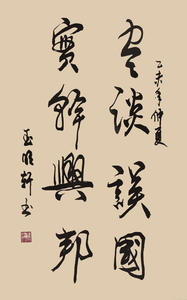 乙未年仲夏
空談誤國
實幹興邦
軒书